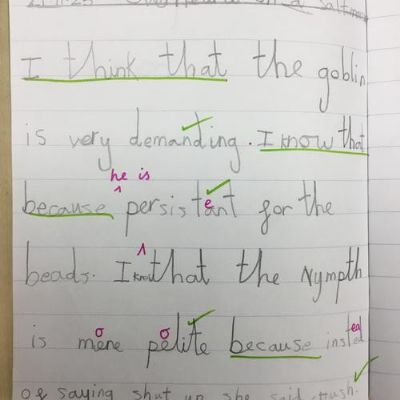 I think that the goblin
is very demanding. I know that
he is
because persistent for the
beads. I know that the Nympth
is more polite because instead
of saying shut up she said hush.